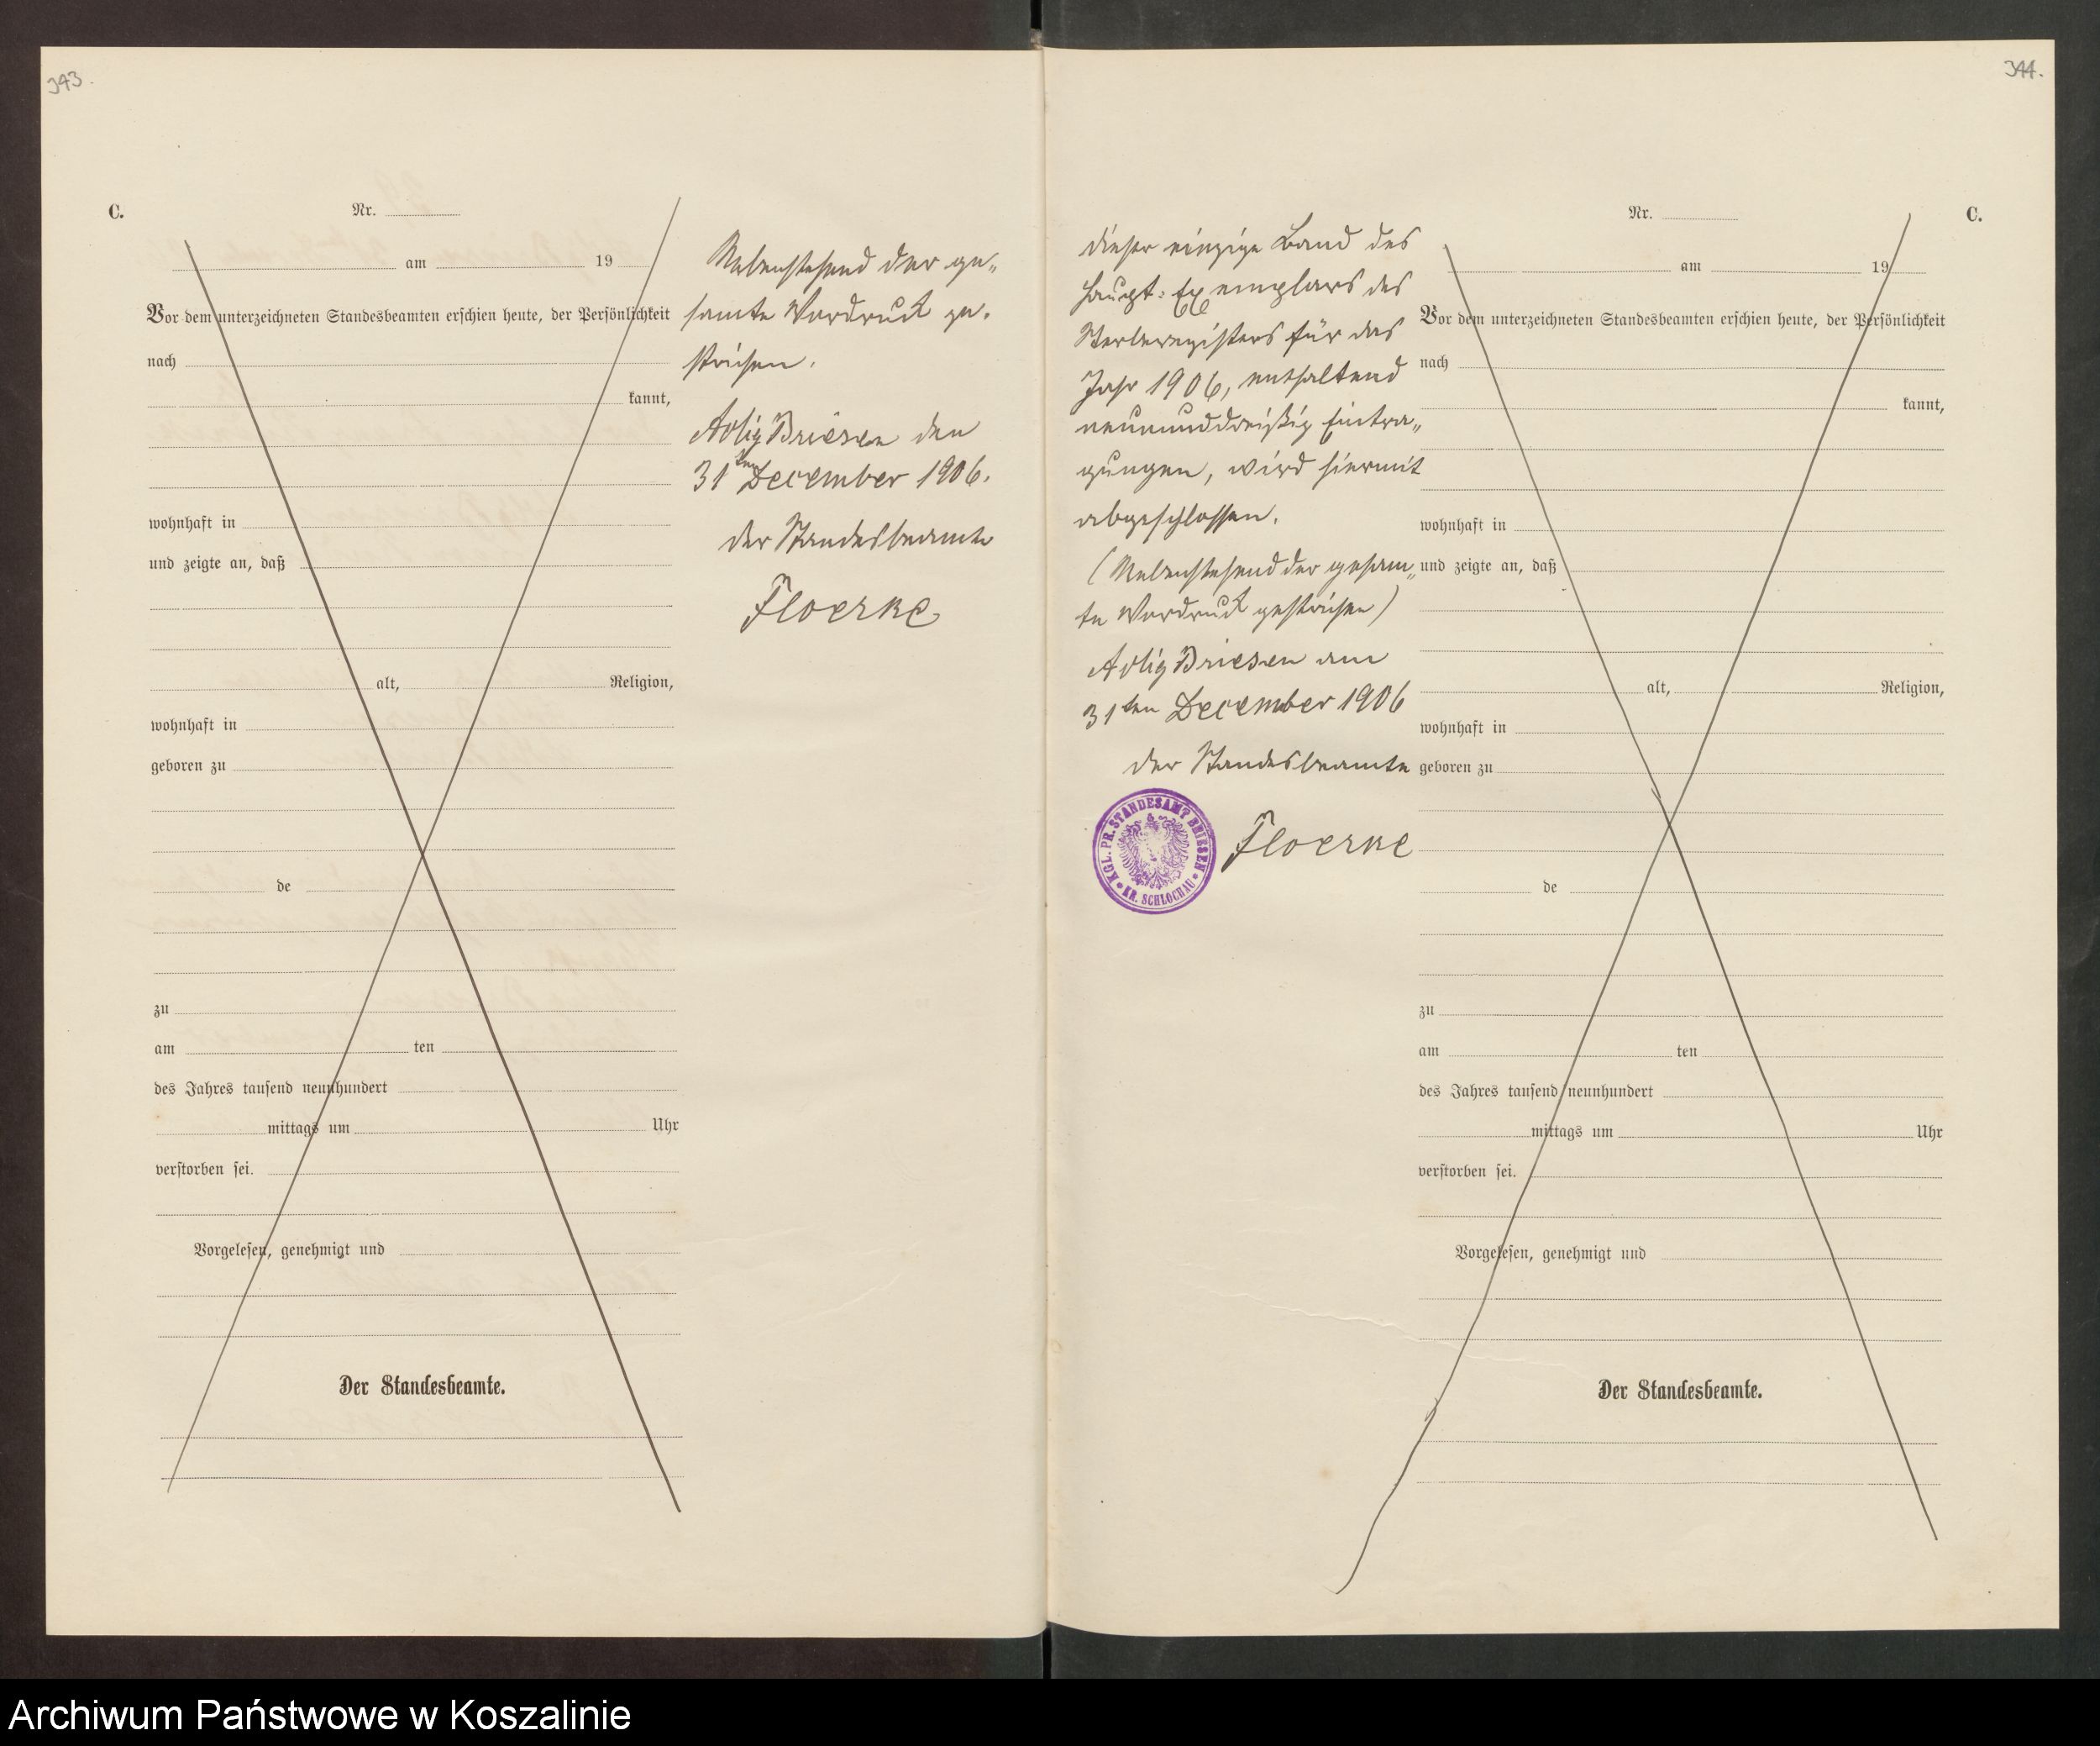 343.
C.
Nr.
am 19
Vor dem unterzeichneten Standesbeamten erschien heute, der Persönlichkeit
nach
kannt,
wohnhaft in
und zeigte an, daß
alt, Religion,
wohnhaft in
geboren zu
de
zu
am ten
des Jahres tausend neunhundert
mittags um Uhr
verstorben sei.
Vorgelesen, genehmigt und
Der Standesbeamte.
Nebenstehend der ge„
samte Vordruck ge-
strichen.
Adlig Briesen den
31ten December 1906.
der Standesbeamte
Floerke
344.
dieser einzige Band des
Haupt-Exemplars des
Sterberegisters für das
Jahr 1906, enthaltend
neununddreißig Eintra„
gungen, wird hiermit
abgeschlossen.
(Nebenstehend der gesam„
te Vordruck gestrichen)
Adlig Briesen am
31ten December 1906
der Standesbeamte
Floerke
KGL. PR. STANDESAMT BRIESEN
KR. SCHLOCHAU
Nr. C.
am 19
Vor dem unterzeichneten Standesbeamten erschien heute, der Persönlichkeit
nach
kannt,
wohnhaft in
und zeigte an, daß
alt, Religion,
wohnhaft in
geboren zu
de
zu
am ten
des Jahres tausend neunhundert
mittags um Uhr
verstorben sei.
Vorgelesen, genehmigt und
Der Standesbeamte.
Archiwum Państwowe w Koszalinie